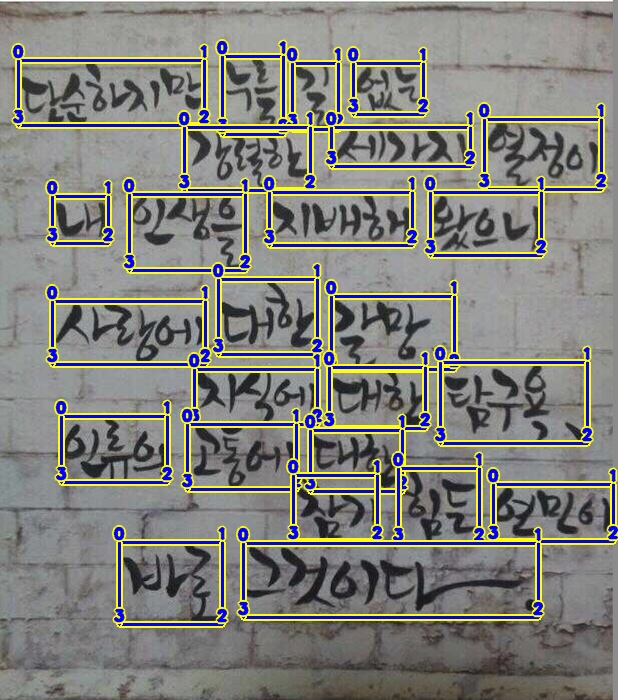 단순하지만 누를 길 없는
강렬한 세가지 열정이
내 인생을 지배해 왔으니
사랑에 대한 갈망
지식에 대한 탐구욕,
인류의 고통에 대한
참기 힘든 연민이
바로 그것이다